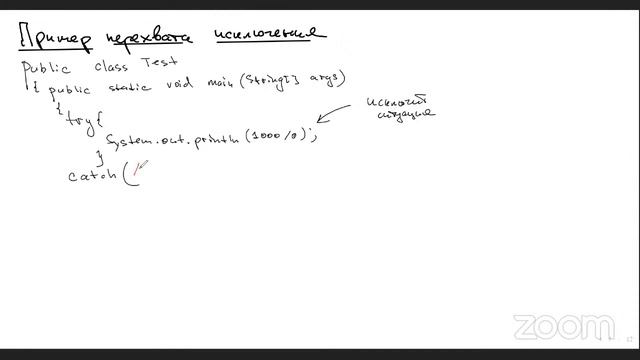 Пример перехвата исключения
public class Test
{ public static void main (String[] args)
{ try {
System.out.println (1000/0);
исключит
ситуация
}
catch (
zoom